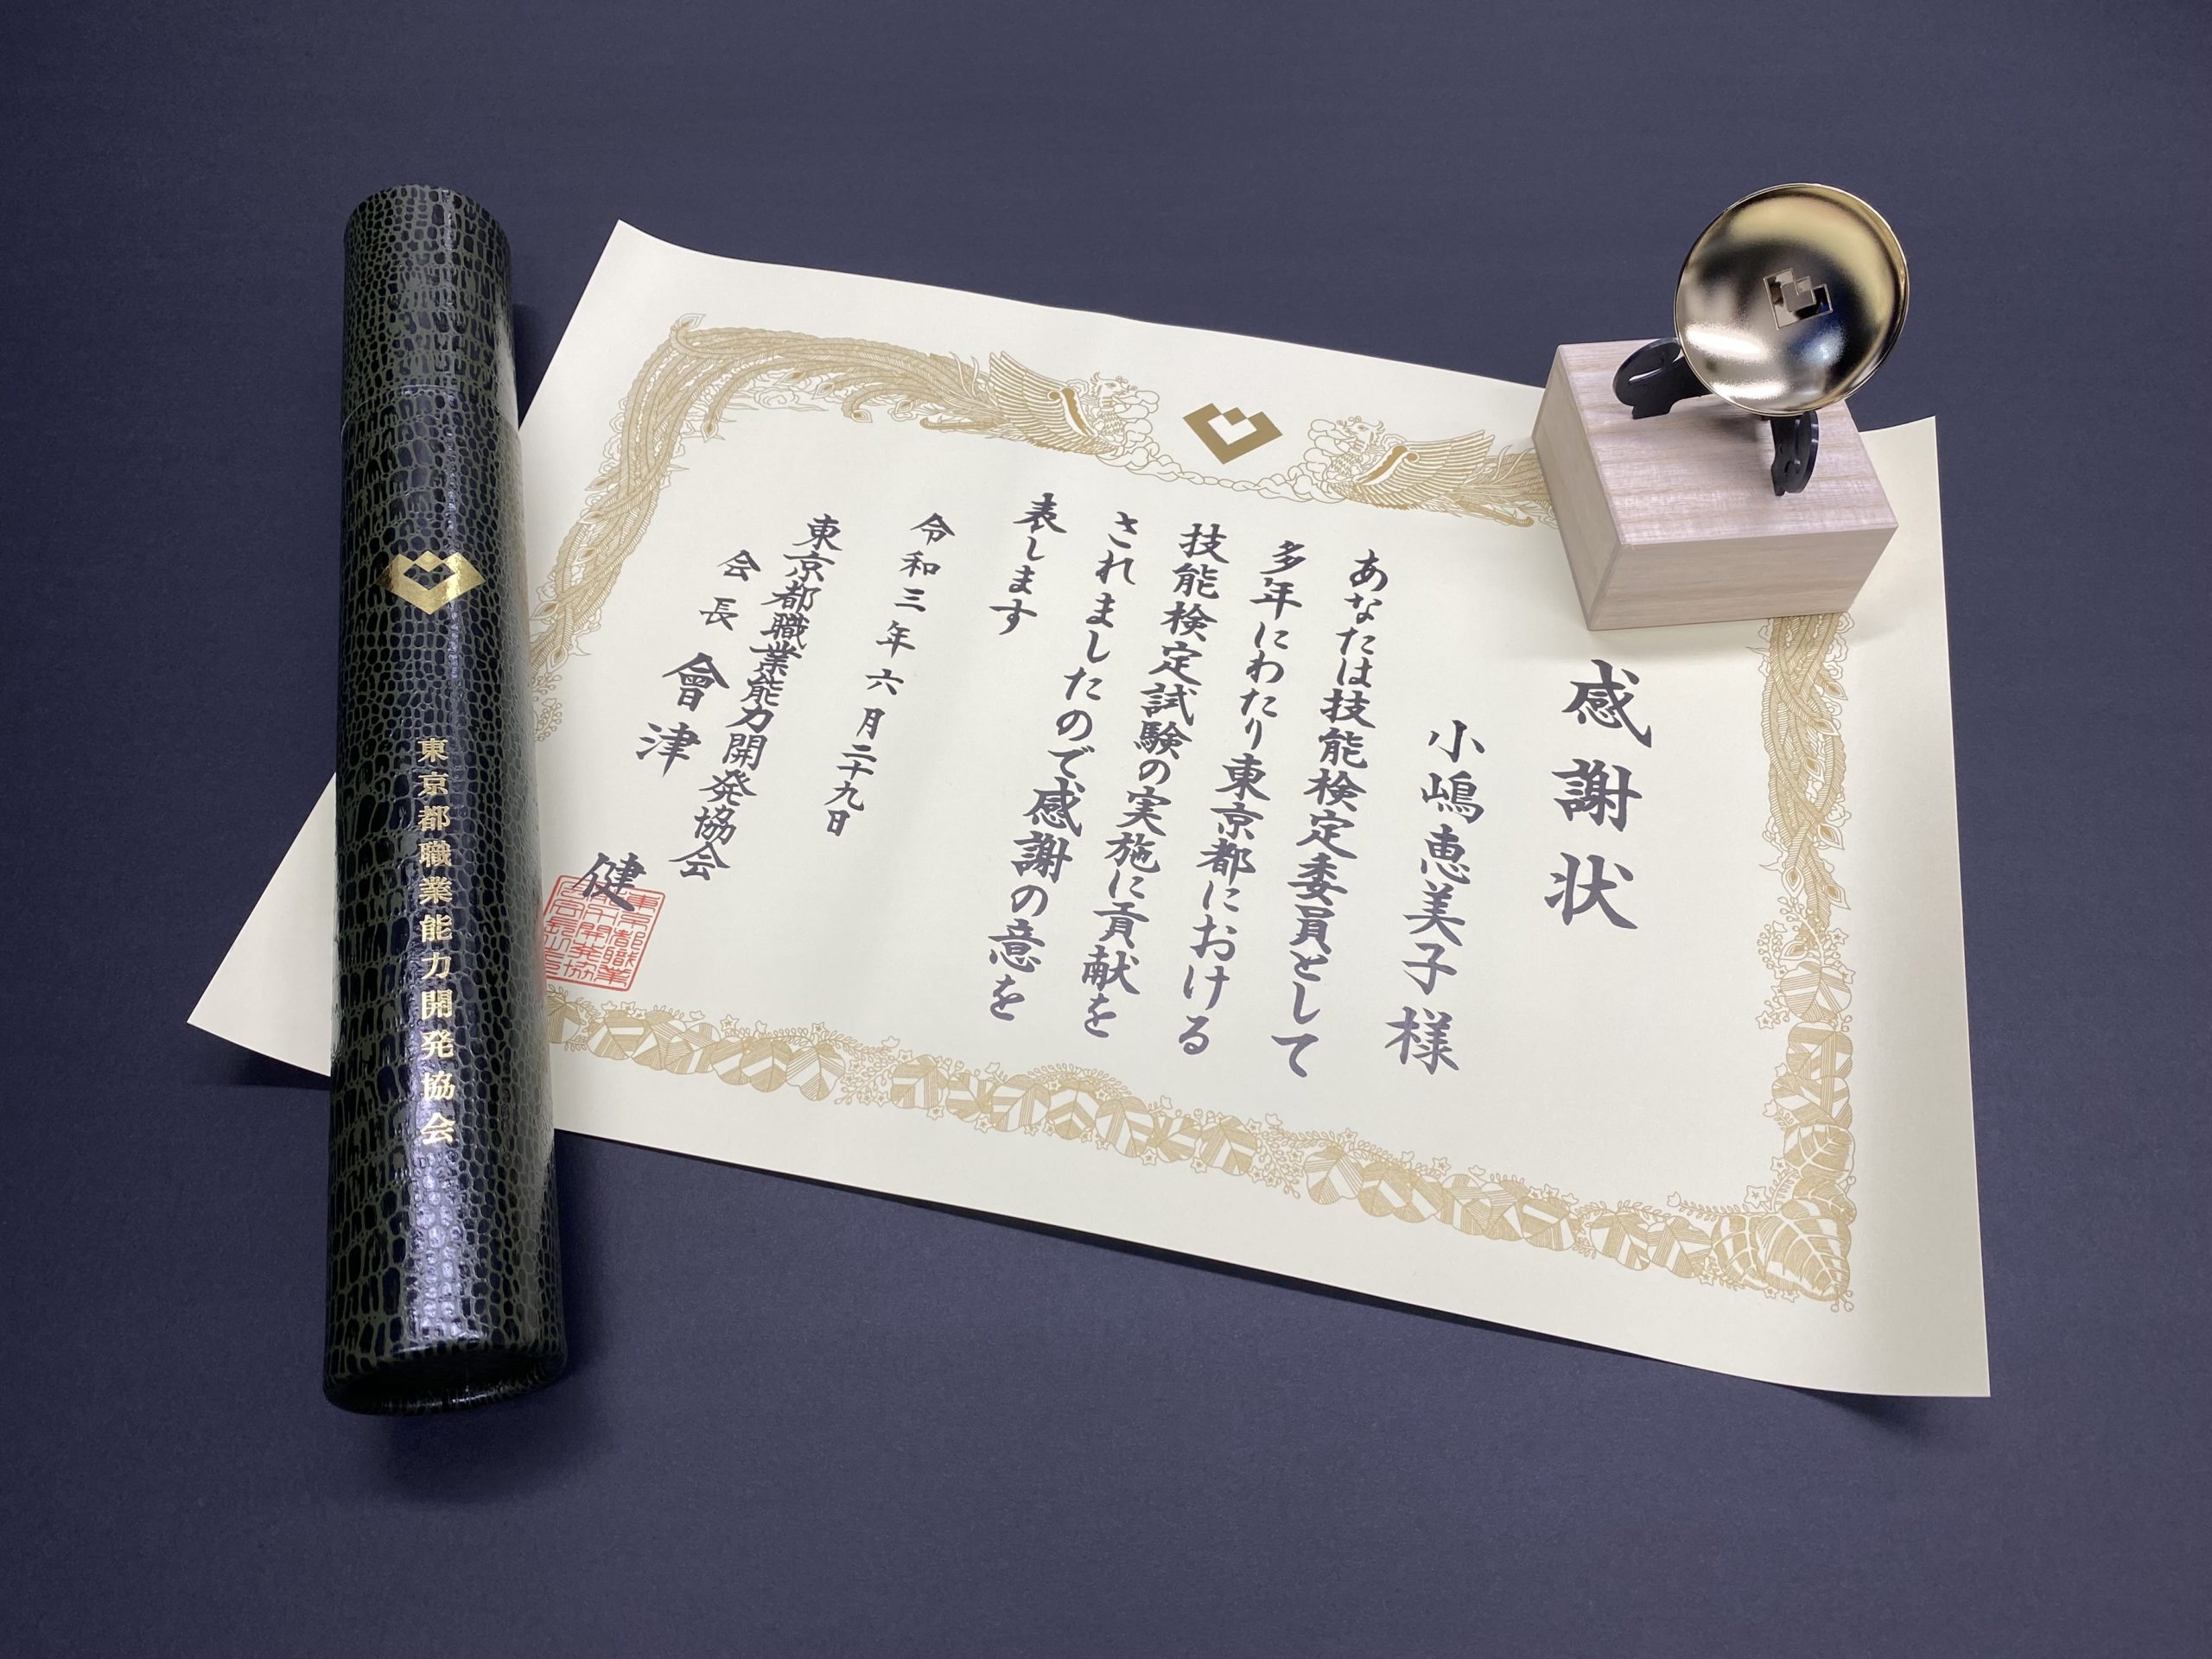 感謝状
小嶋恵美子様
あなたは技能検定委員として
多年にわたり東京都における
技能検定試験の実施に貢献を
されましたので感謝の意を
表します
令和三年六月二十九日
東京都職業能力開発協会
会長 會津 健
東京都職業能力開発協会